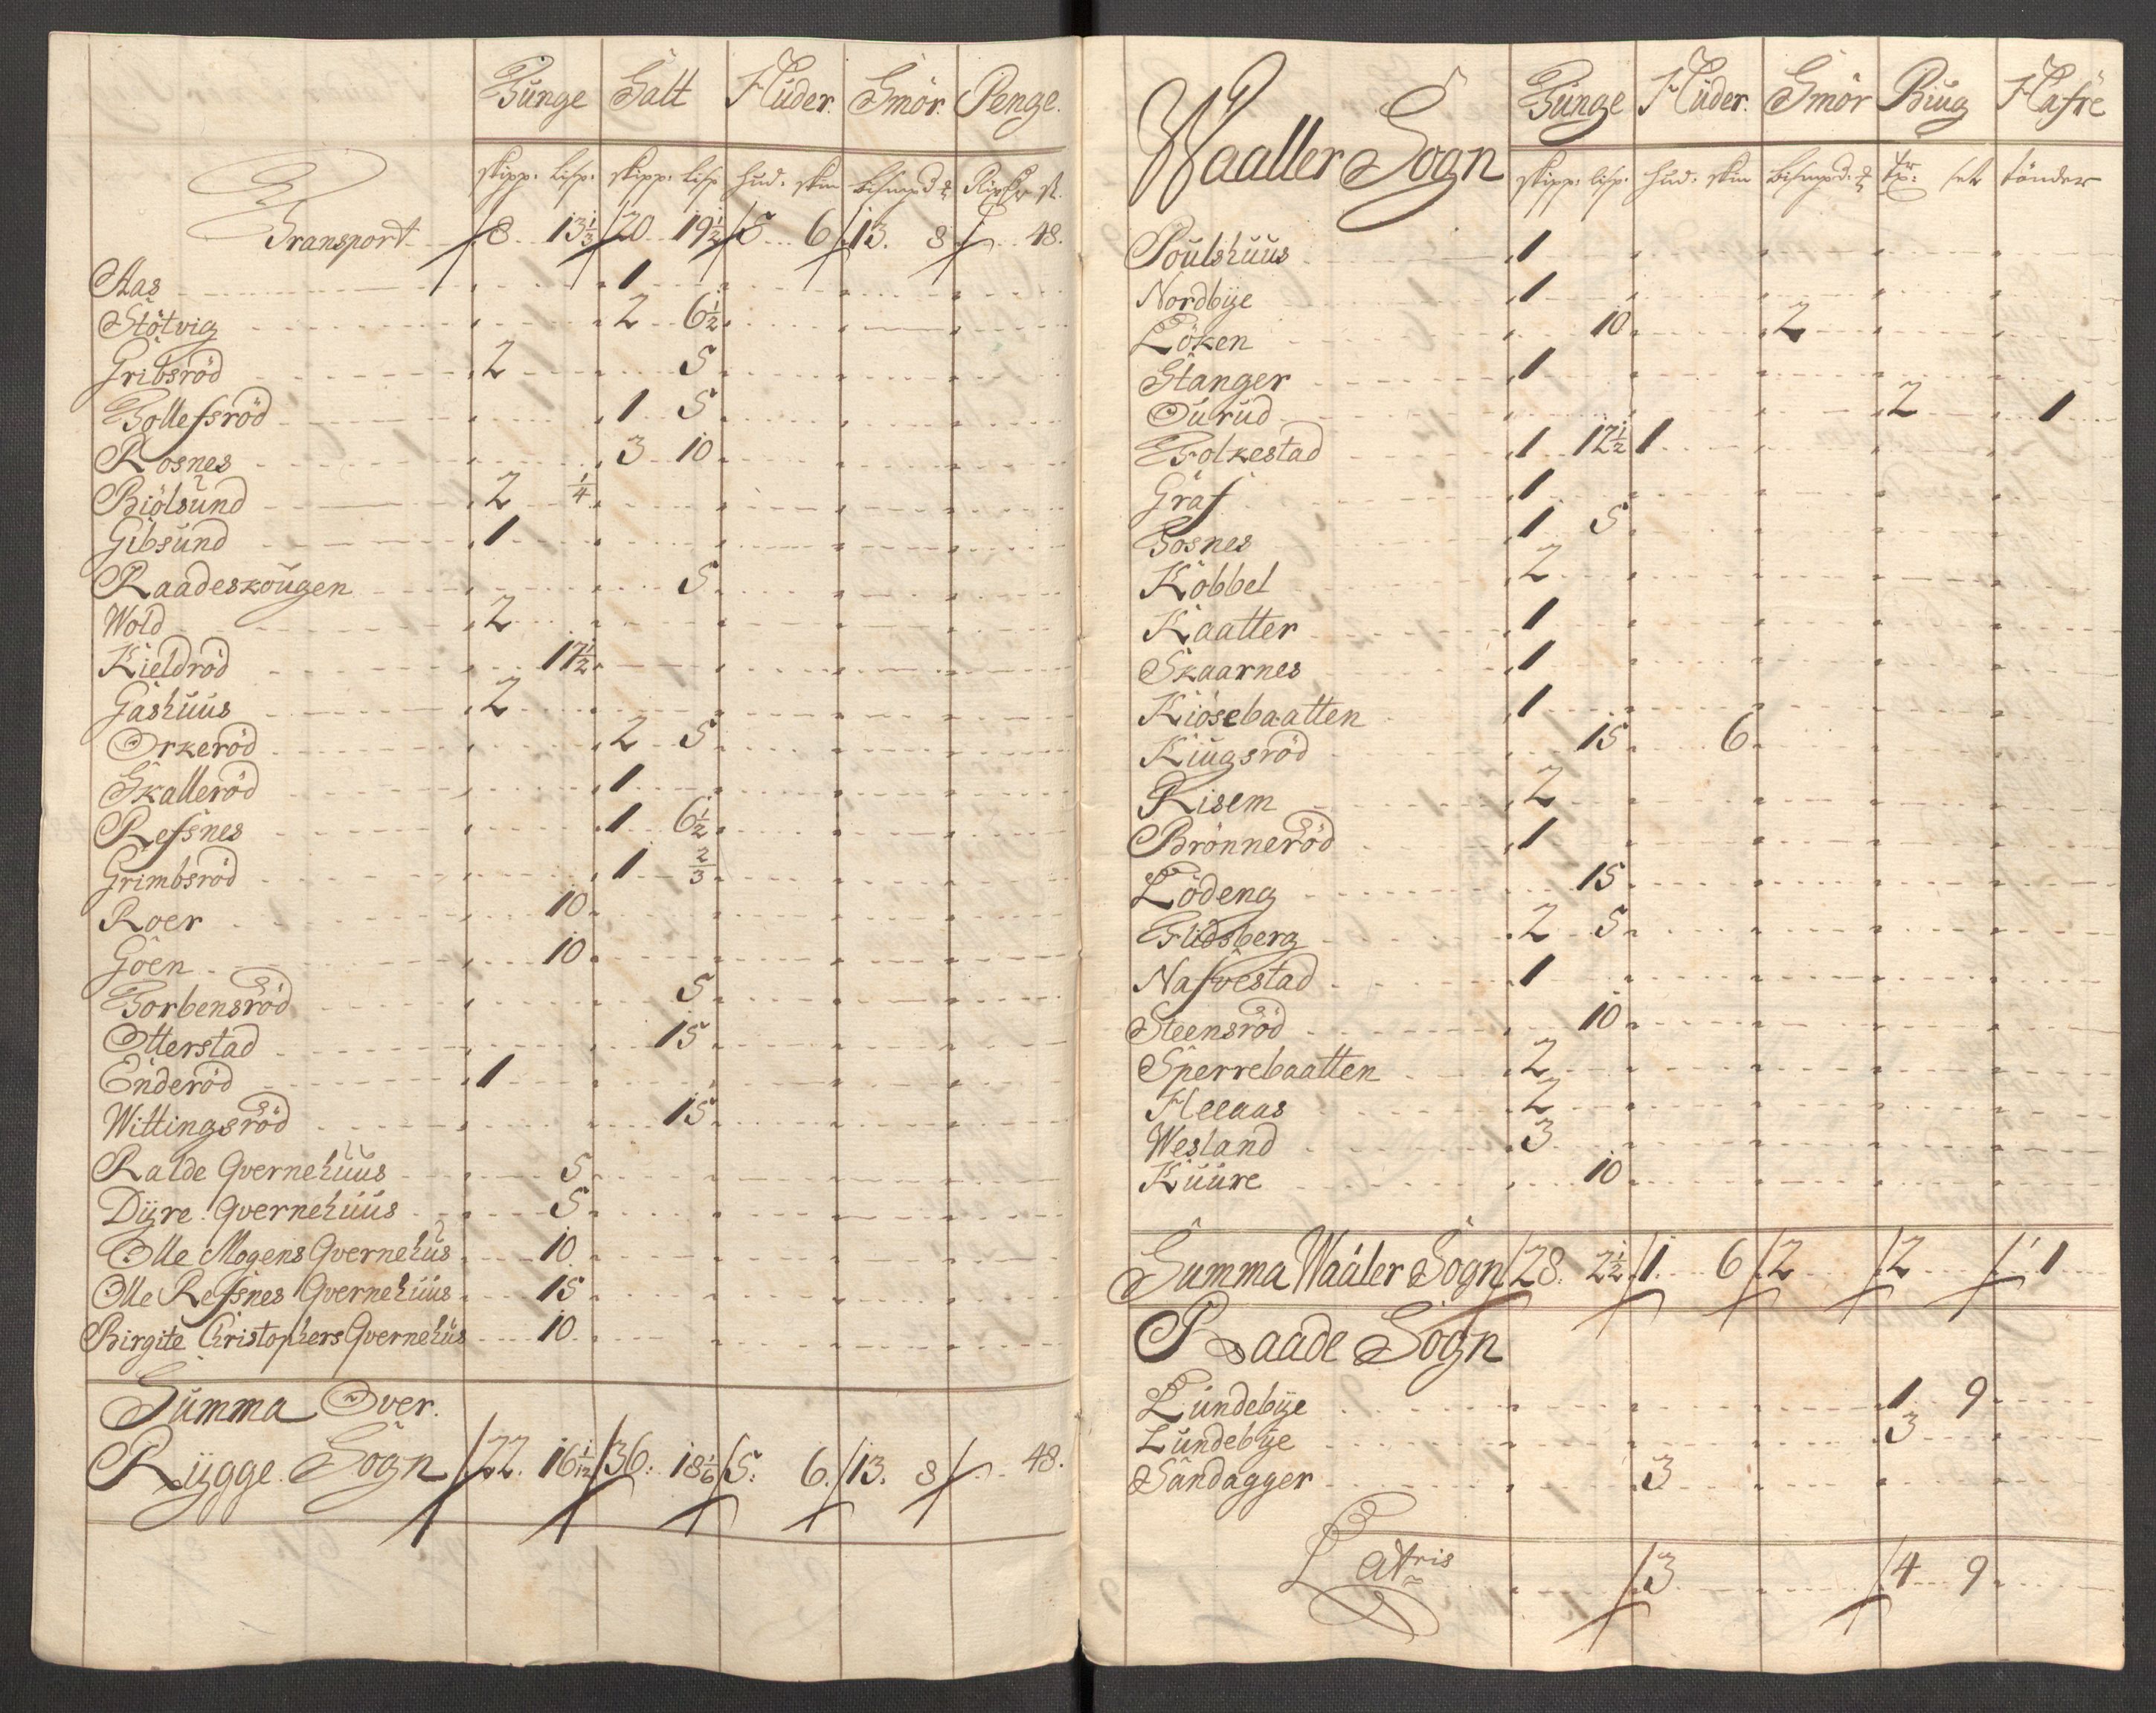 Tunge Salt Huder. Smör. Penge.
skipp. lisp. skipp. lisp hud. skin
Transport 8 13 1/3 20 19 1/2 5 6 13. 8 48.
Aas 1
Stötvig 2 6 1/2
Gribsröd 2 5
Tollefsröd 1 5
Rosnes 3 10
Biölsund 2 1/4
Gibsund 1
Raadeskougen 5
Wold 2
Kieldröd 17 1/2
Gashuus 2
Orkeröd 2 5
Skalleröd 1
Refsnes 1 6 1/2
Grimbsröd 1 2/3
Roer 10
Goen 10
Torbensröd 5
Otterstad 15
Enderöd 1
Wittingsröd 15
Ralde Qvernehuus 5
Dyre Qvernehuus 5
Olle Mogens Qvernehus 10
Olle Refsnes Qvernehuus 15
Birgite Christophers Qvernehus 10
Summa Over.
Rygge Sogn 22. 16 1/12 36. 18 1/6 5. 6. 13. 8 48.
Waaller Sogn Tunge Huder. Smör Biug Hafre
skipp. lisp. hud. skin tönder
Poulshuus 1
Nordbye 1
Löken 10 2
Stanger 1
Ourud 2 1
Folkestad 1 12 1/2 1
Graf 1
Tosnes 1 5
Kobbel 2
Kaatter 1
Skaarnes 1
Kiösebaatten 1
Kiugsröd 15 6
Risem 2
Brönneröd 1
Lödeng 15
Flidsberg 2 5
Nafvestad 1
Steensröd 10
Sperrebaatten 2
Heeaas 2
Wesland 3
Kuure 10
Summa Waaler Sogn 28. 2 1/2 1. 6 2 2 1
Raade Sogn
Lundebye 1 9
Lundebye 3
Sandagger 3
Latris 3 4 9